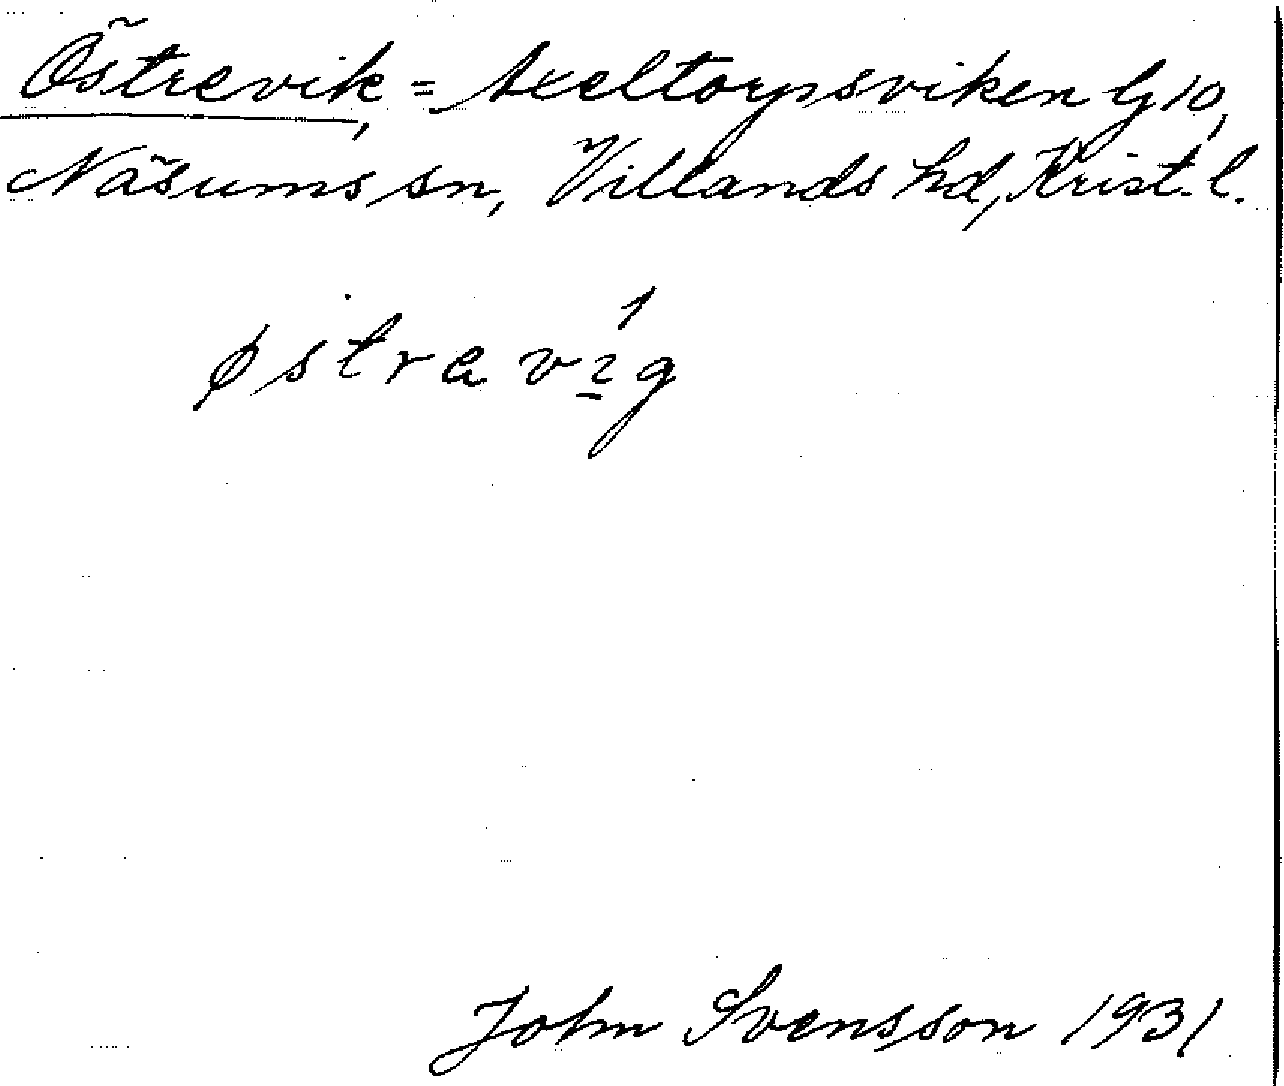 Östrevik, = Axeltorpsviken G10,
Näsums sn, Villands hd, Krist. l.
østraví̱g
John Svensson 1931